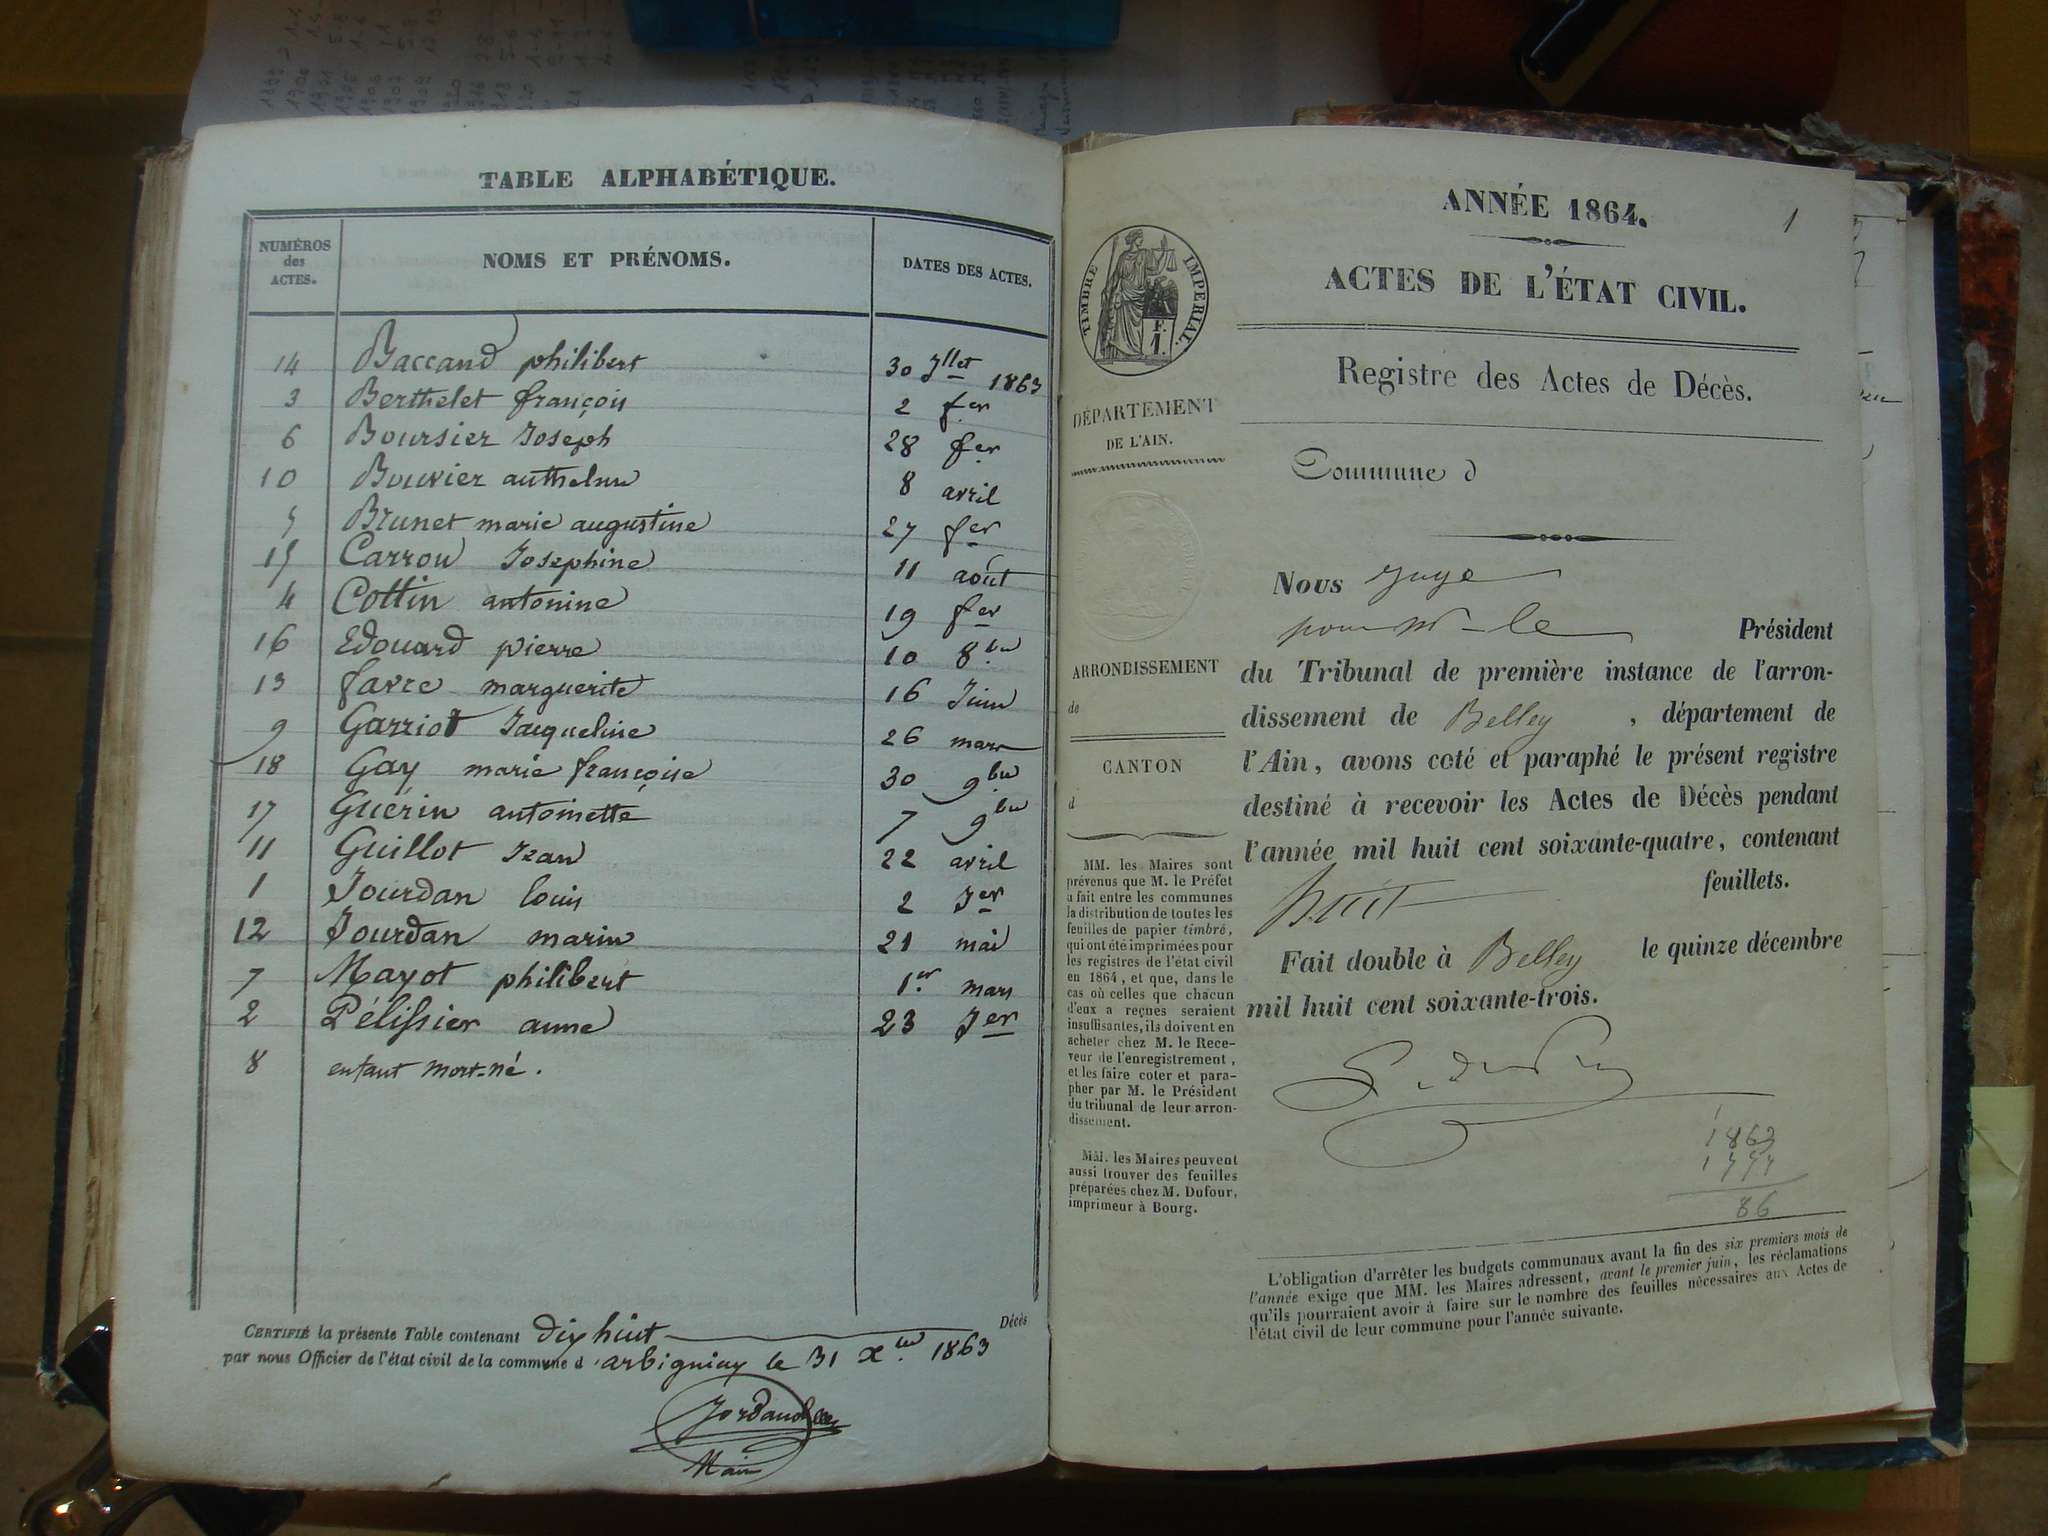 TABLE ALPHABÉTIQUE.
NUMÉROS des ACTES. NOMS ET PRÉNOMS. DATES DES ACTES.
14 Baccand philibert 30 Jllet 1863
3 Berthelet françois 2 fer
6 Boursier Joseph 28 fer
10 Bouvier anthelme 8 avril
5 Brunet marie augustine 27 fer
15 Carrou Josephine 11 août
4 Cottin antonine 19 fer
16 Edouard pierre 10 8bre
13 favre marguerite 16 Juin
9 Garriot Jacqueline 26 mars
18 Gay marie françoise 30 9bre
17 Guérin antoinette 7 9bre
11 Guillot Jean 22 avril
1 Jourdan louis 2 Jer
12 Jourdan marin 21 mai
7 Mayot philibert 1er mars
2 Pélissier anne 23 Jer
8 enfant mort-né.
CERTIFIÉ la présente Table contenant dix huit Décès
par nous Officier de l'état civil de la commune d'arbignieu le 31 Xbre 1863
Maire
ANNÉE 1864. 1
ACTES DE L'ÉTAT CIVIL.
Registre des Actes de Décès.
TIMBRE IMPÉRIAL.
F.
1.
DÉPARTEMENT
DE L'AIN.
Commune d
ARRONDISSEMENT
de
CANTON
d
MM. les Maires sont
prévenus que M. le Préfet
a fait entre les communes
la distribution de toutes les
feuilles de papier timbré,
qui ont été imprimées pour
les registres de l'état civil
en 1864, et que, dans le
cas où celles que chacun
d'eux a reçues seraient
insuffisantes, ils doivent en
acheter chez M. le Rece-
veur de l'enregistrement,
et les faire coter et para-
pher par M. le Président
du tribunal de leur arron-
dissement.
MM. les Maires peuvent
aussi trouver des feuilles
préparées chez M. Dufour,
imprimeur à Bourg.
Nous Juge
pour Mr le Président
du Tribunal de première instance de l'arron-
dissement de Belley, département de
l'Ain, avons coté et paraphé le présent registre
destiné à recevoir les Actes de Décès pendant
l'année mil huit cent soixante-quatre, contenant
huit feuillets.
Fait double à Belley le quinze décembre
mil huit cent soixante-trois.
1863
1777
86
L'obligation d'arrêter les budgets communaux avant la fin des six premiers mois de
l'année exige que MM. les Maires adressent, avant le premier juin, les réclamations
qu'ils pourraient avoir à faire sur le nombre des feuilles nécessaires aux Actes de
l'état civil de leur commune pour l'année suivante.